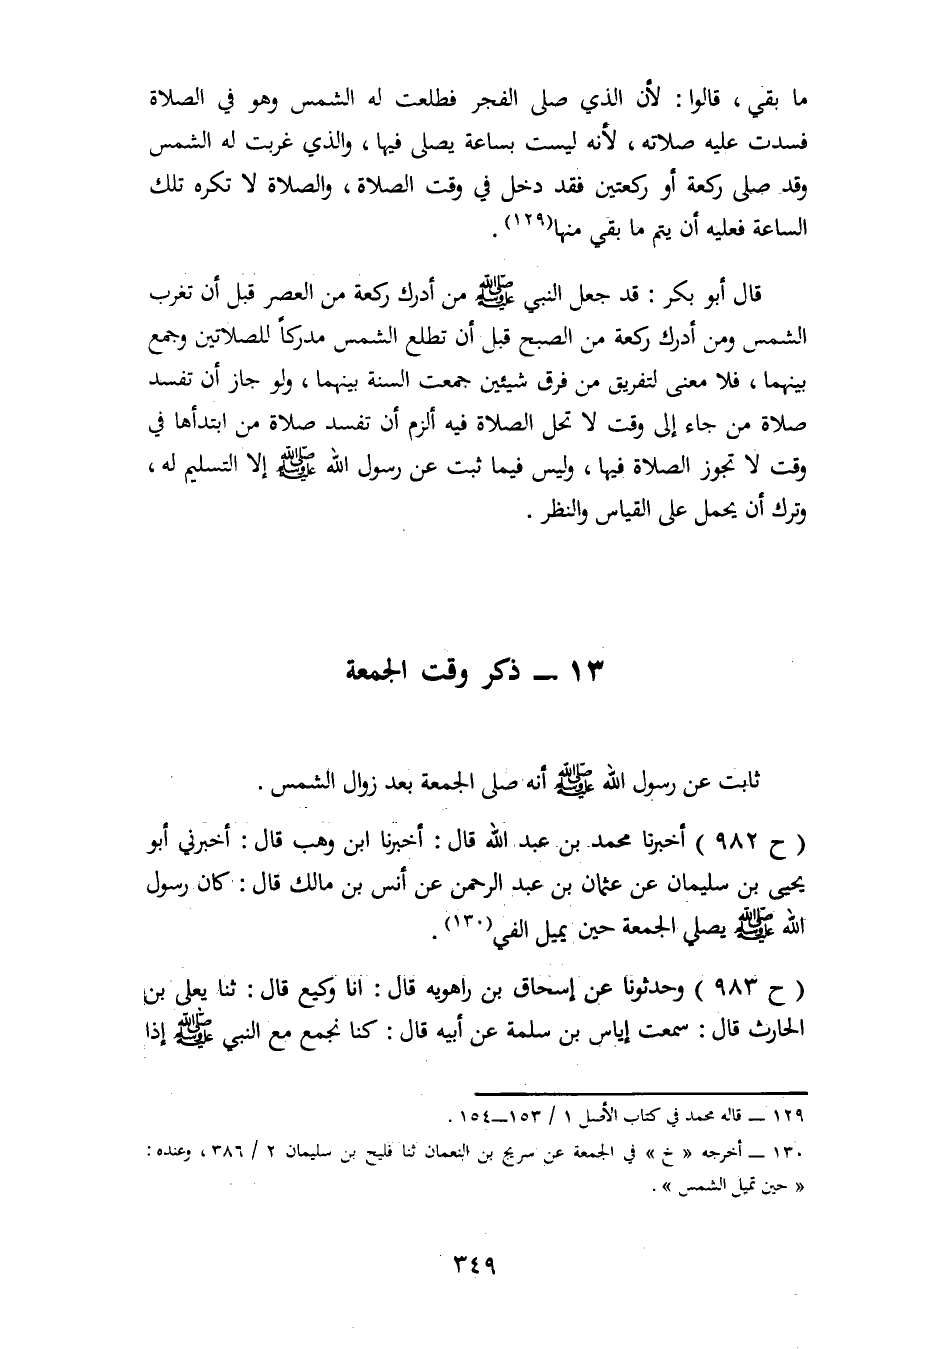 ما بقي ، قالوا : لأن الذي صلى الفجر فطلعت له الشمس وهو في الصلاة
فسدت عليه صلاته ، لأنه ليست بساعة يصلى فيها ، والذي غربت له الشمس
وقد صلى ركعة أو ركعتين فقد دخل في وقت الصلاة ، والصلاة لا تكره تلك
الساعة فعليه أن يتم ما بقي منها(١٢٩) .
قال أبو بكر : قد جعل النبي ﷺ من أدرك ركعة من العصر قبل أن تغرب
الشمس ومن أدرك ركعة من الصبح قبل أن تطلع الشمس مدركاً للصلاتين وجمع
بينهما ، فلا معنى لتفريق من فرق شيئين جمعت السنة بينهما ، ولو جاز أن تفسد
صلاة من جاء إلى وقت لا تحل الصلاة فيه ألزم أن تفسد صلاة من ابتدأها في
وقت لا تجوز الصلاة فيها ، وليس فيما ثبت عن رسول الله ﷺ إلا التسليم له ،
وترك أن يحمل على القياس والنظر .
١٣ ــ ذكر وقت الجمعة
ثابت عن رسول الله ﷺ أنه صلى الجمعة بعد زوال الشمس .
( ح ٩٨٢ ) أخبرنا محمد بن عبد الله قال : أخبرنا ابن وهب قال : أخبرني أبو
يحيى بن سليمان عن عثمان بن عبد الرحمن عن أنس بن مالك قال : كان رسول
الله ﷺ يصلي الجمعة حين يميل الفي(١٣٠) .
( ح ٩٨٣ ) وحدثونا عن إسحاق بن راهويه قال : أنا وكيع قال : ثنا يعلى بن
الحارث قال : سمعت إياس بن سلمة عن أبيه قال : كنا نجمع مع النبي ﷺ إذا
١٢٩ ــ قاله محمد في كتاب الأصل ١ / ١٥٣ــ١٥٤ .
١٣٠ ــ أخرجه « خ » في الجمعة عن سريج بن النعمان ثنا فليح بن سليمان ٢ / ٣٨٦ ، وعنده :
« حين تميل الشمس » .
٣٤٩